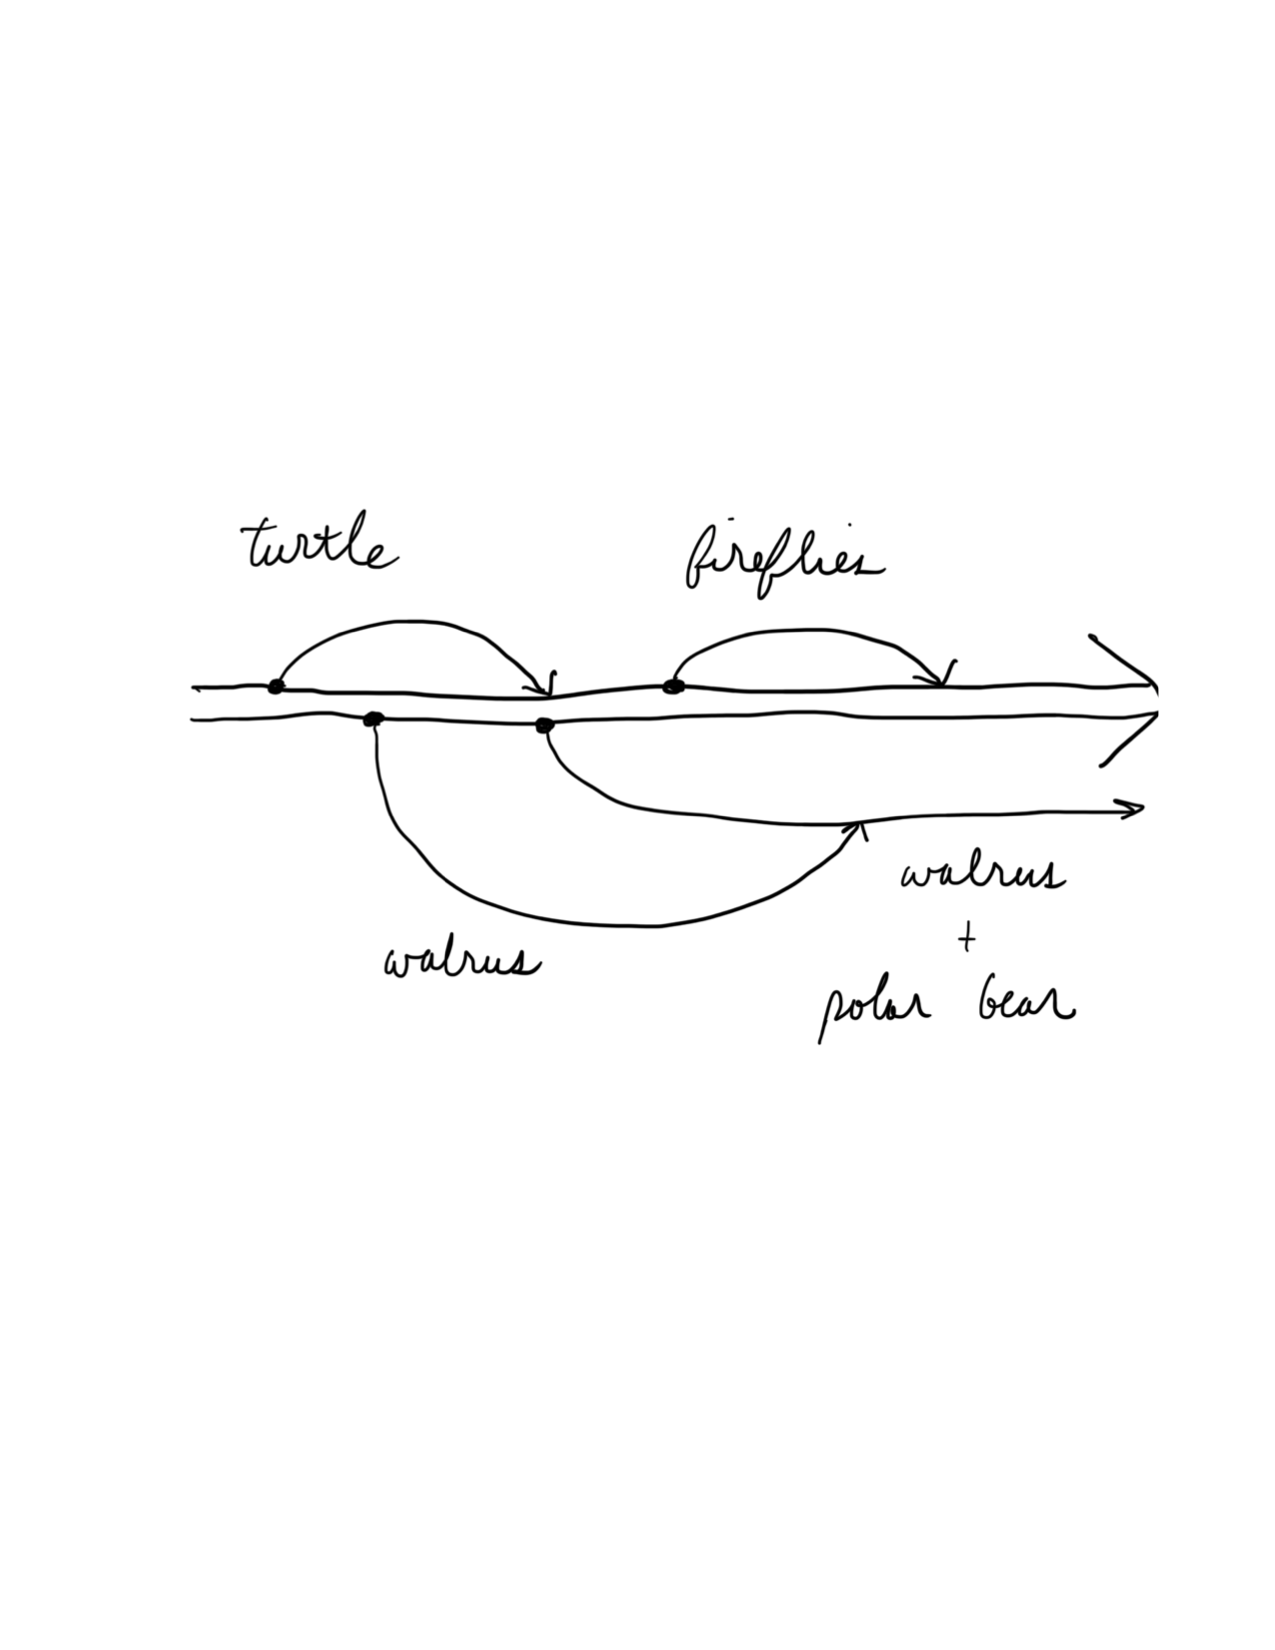 turtle
fireflies
walrus
walrus
+
polar bear